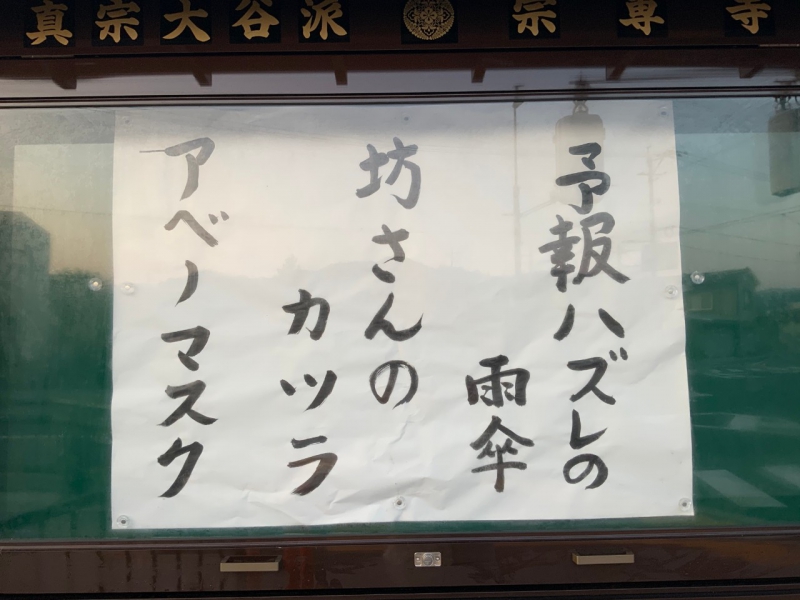 真宗大谷派 宗専寺
予報ハズレの
雨傘
坊さんの
カツラ
アベノマスク